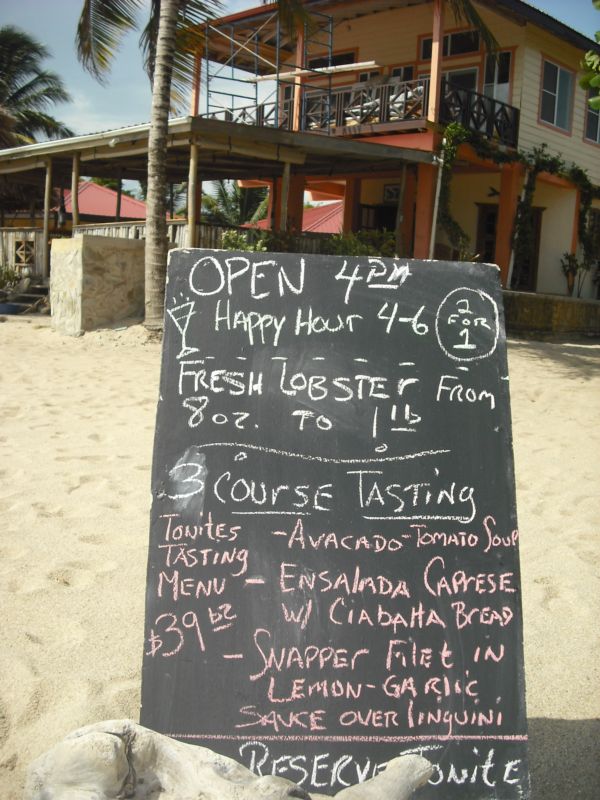 OPEN 4PM
HAPPY HOUR 4-6 2 FOR 1
FRESH LOBSTER FROM
8 OZ. TO 1 lb
3 COURSE TASTING
TONITES
TASTING
MENU
$39 bz
- AVACADO-TOMATO SOUP
- ENSALADA CAPRESE
W/ CIABATTA BREAD
- SNAPPER FILET IN
LEMON-GARLIC
SAUCE OVER LINGUINI
RESERVE TONITE